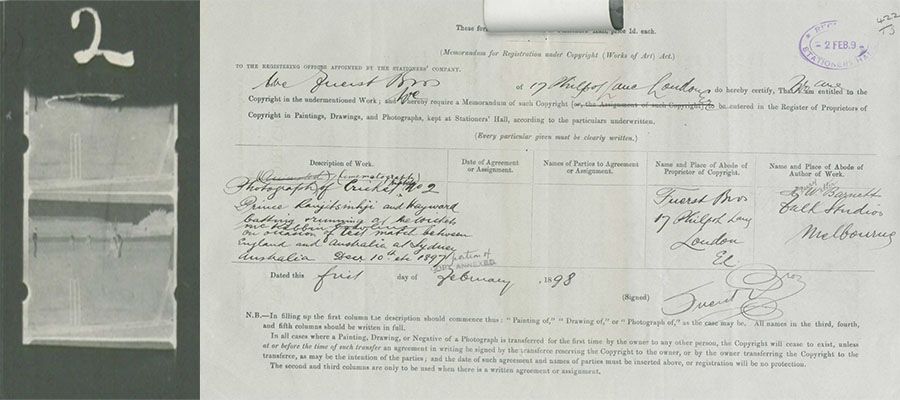 2
These for
Hall, price 1d. each.
422
- 2 FEB. 9
STATIONERS' HALL
(Memorandum for Registration under Copyright (Works of Art) Act.)
TO THE REGISTERING OFFICER APPOINTED BY THE STATIONERS' COMPANY.
We Fuerst Bros of 17 Philpot Lane London do hereby certify, That We are entitled to the
Copyright in the undermentioned Work; and We hereby require a Memorandum of such Copyright (or, the Assignment of such Copyright) to be entered in the Register of Proprietors
of Copyright in Paintings, Drawings, and Photographs, kept at Stationers' Hall, according to the particulars underwritten.
(Every particular given must be clearly written.)
Description of Work.
Date of Agreement or Assignment.
Names of Parties to Agreement or Assignment.
Name and Place of Abode of Proprietor of Copyright.
Name and Place of Abode of Author of Work.
(Cinematograph)
Photograph of Cricket, No 2
Prince Ranjitsinhji and Hayward
batting & running at the wickets
on occasion of test match between
England and Australia at Sydney
Australia Decr 10th etc 1897
portion of
COPY ANNEXED
Fuerst Bros
17 Philpot Lane
London
EC
W Barnett
Talk Studios
Melbourne
Dated this first day of February 1898
(Signed) Fuerst Bros
N.B.—In filling up the first column the description should commence thus: "Painting of," "Drawing of," or "Photograph of," as the case may be. All names in the third, fourth,
and fifth columns should be written in full.
In all cases where a Painting, Drawing, or Negative of a Photograph is transferred for the first time by the owner to any other person, the Copyright will cease to exist, unless
at or before the time of such transfer an agreement in writing be signed by the transferee reserving the Copyright to the owner, or by the owner transferring the Copyright to the
transferee, as may be the intention of the parties; and the date of such agreement and names of parties must be inserted above, or registration will be no protection.
The second and third columns are only to be used when there is a written agreement or assignment.